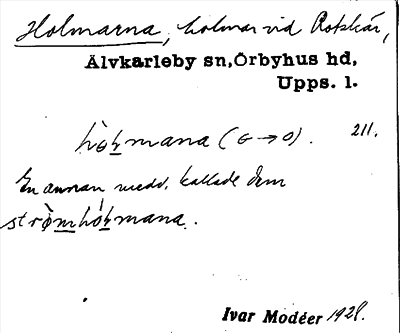 Holmarna, holmar vid Rotskär,
Älvkarleby sn, Örbyhus hd,
Upps. l.
hòhmana (G→O). 211.
En annan medd. kallade dem
strǿmhóhmana.
Ivar Modéer 1928.